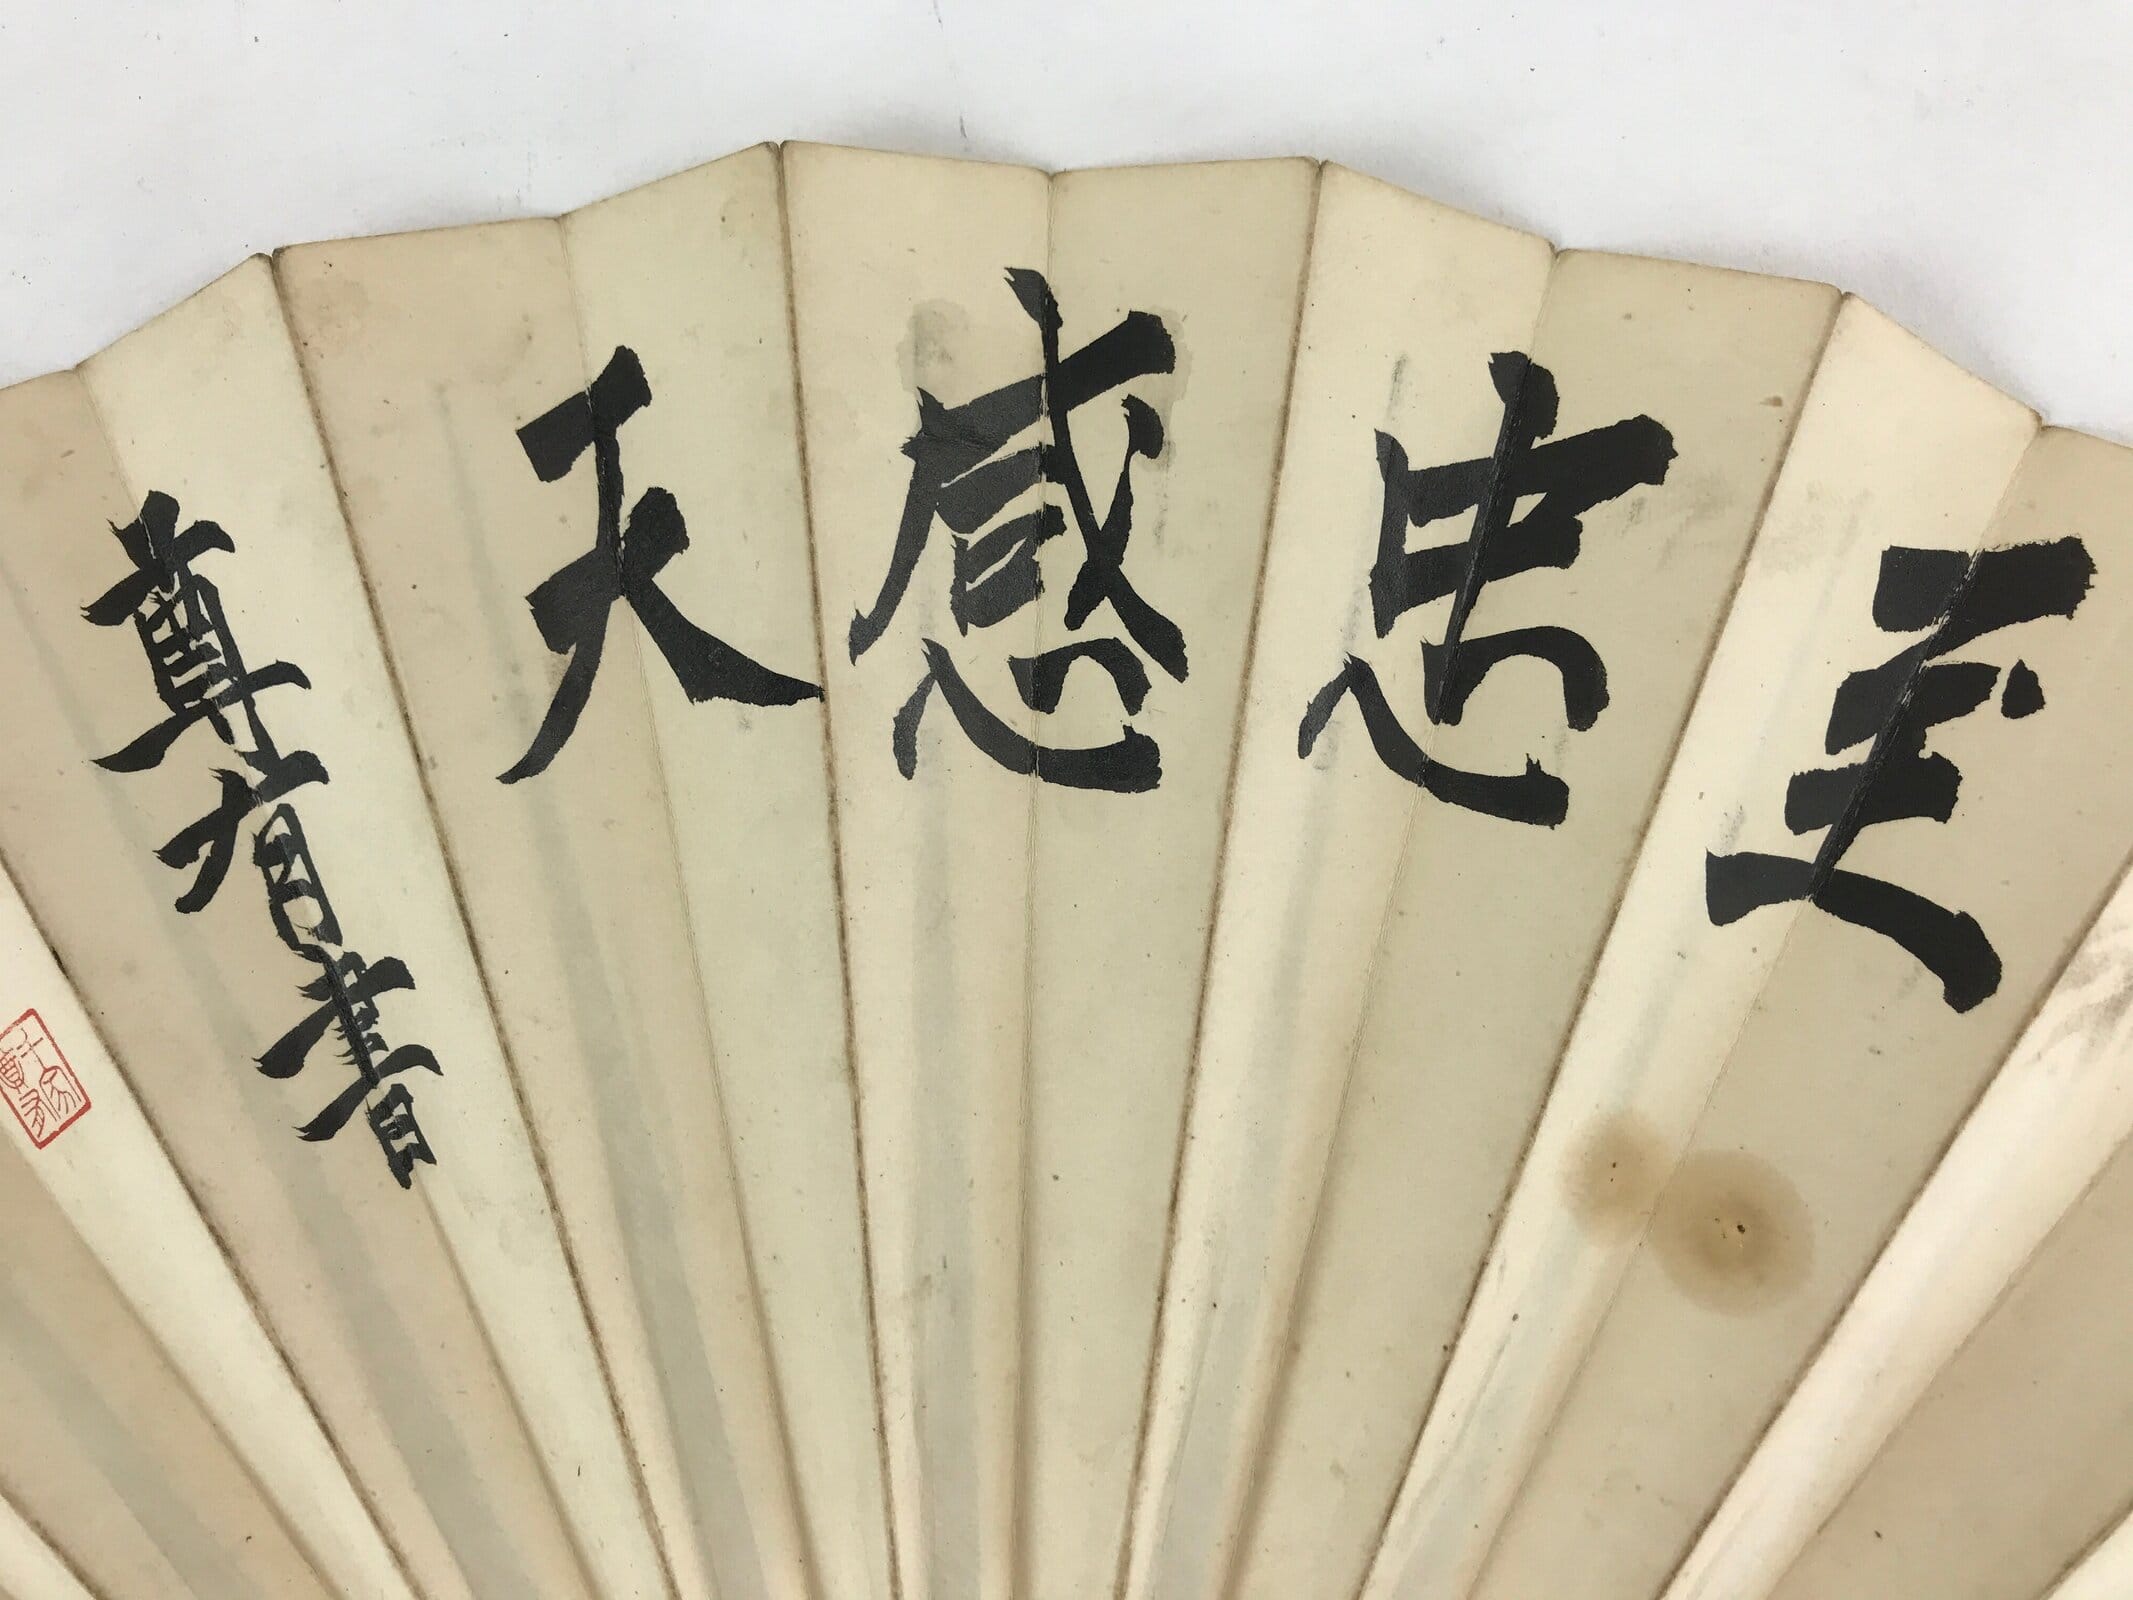 至忠感天
尊有書